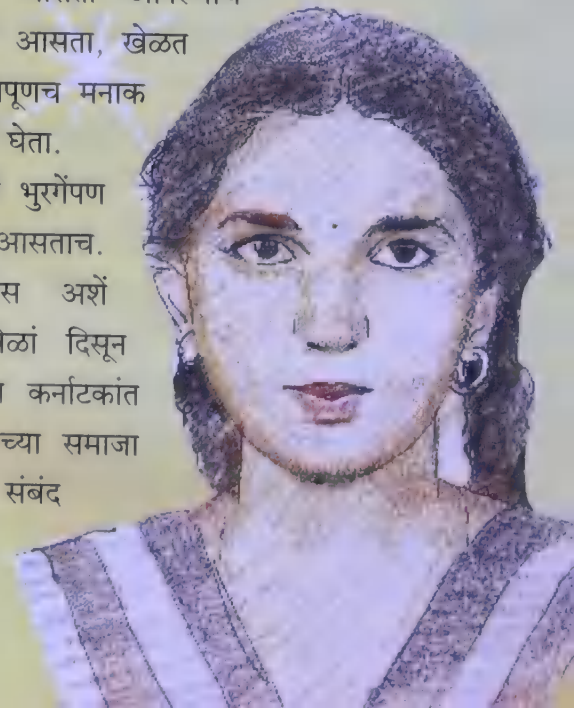 आसता, खेळत
पूणच मनाक
घेता.
भुरगेंपण
आसताच.
स अशें
ळां दिसून
कर्नाटकांत
च्या समाजा
संबंद